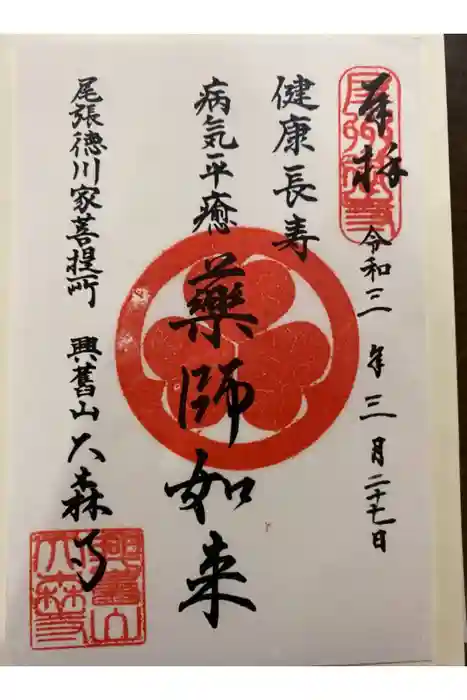 奉拝
令和三年三月二十七日
健康長寿
病気平癒
薬師如来
尾張徳川家菩提所
興舊山大森寺
興舊山
大森寺